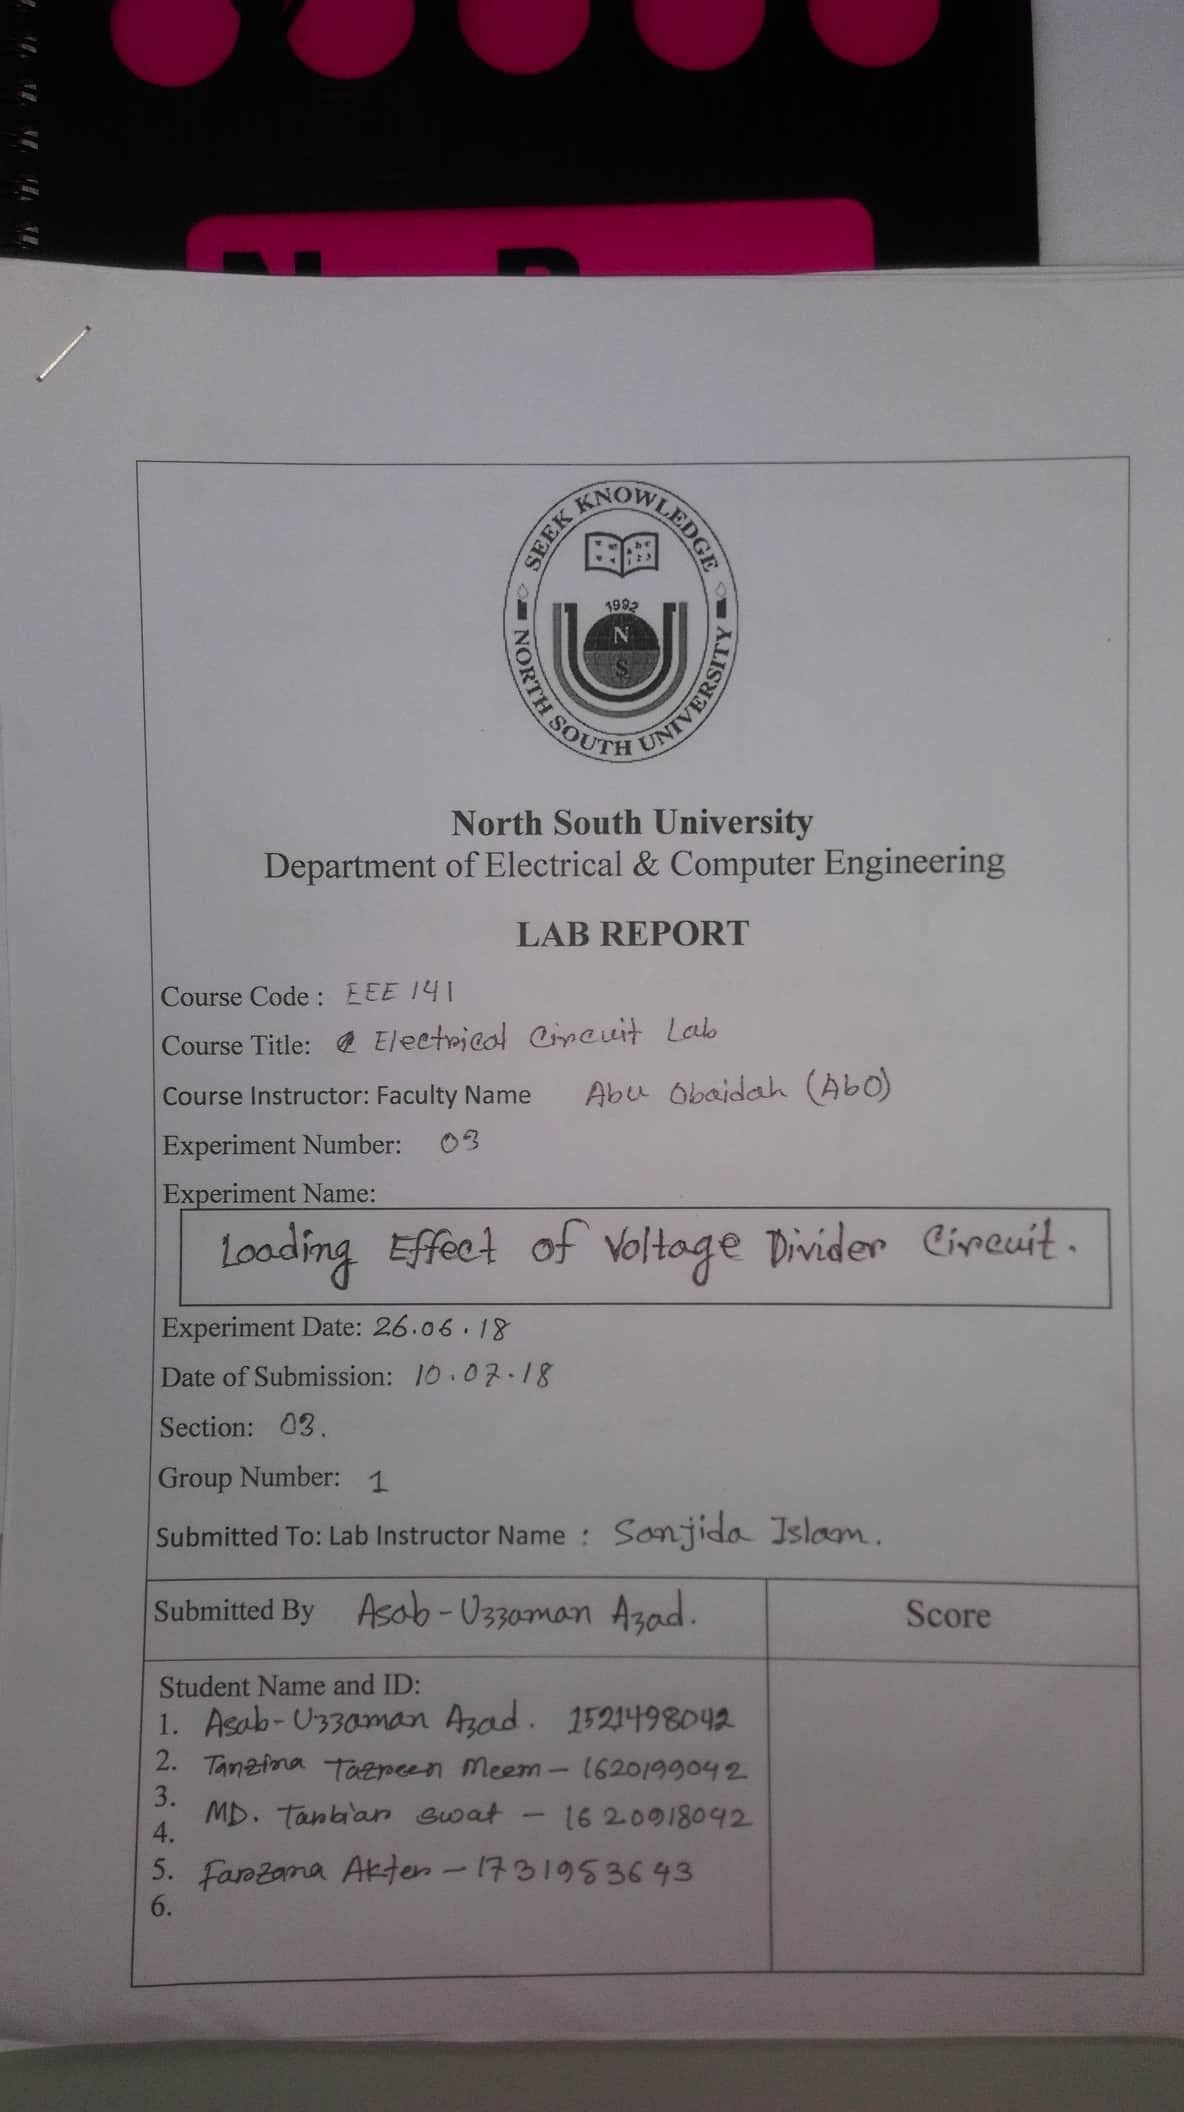 SEEK KNOWLEDGE
1992
N
S
NORTH SOUTH UNIVERSITY
North South University
Department of Electrical & Computer Engineering
LAB REPORT
Course Code : EEE 141
Course Title: Electrical Circuit Lab
Course Instructor: Faculty Name Abu Obaidah (AbO)
Experiment Number: 03
Experiment Name:
Loading Effect of Voltage Divider Circuit.
Experiment Date: 26.06.18
Date of Submission: 10.07.18
Section: 03.
Group Number: 1
Submitted To: Lab Instructor Name : Sanjida Islam.
Submitted By Asab-Uzzaman Azad.
Score
Student Name and ID:
1. Asab-Uzzaman Azad. 1521498042
2. Tanzina Tazreen Meem - 1620199042
3.
MD. Tanbiar swat - 1620918042
4.
5. Farzana Akter - 1731953643
6.